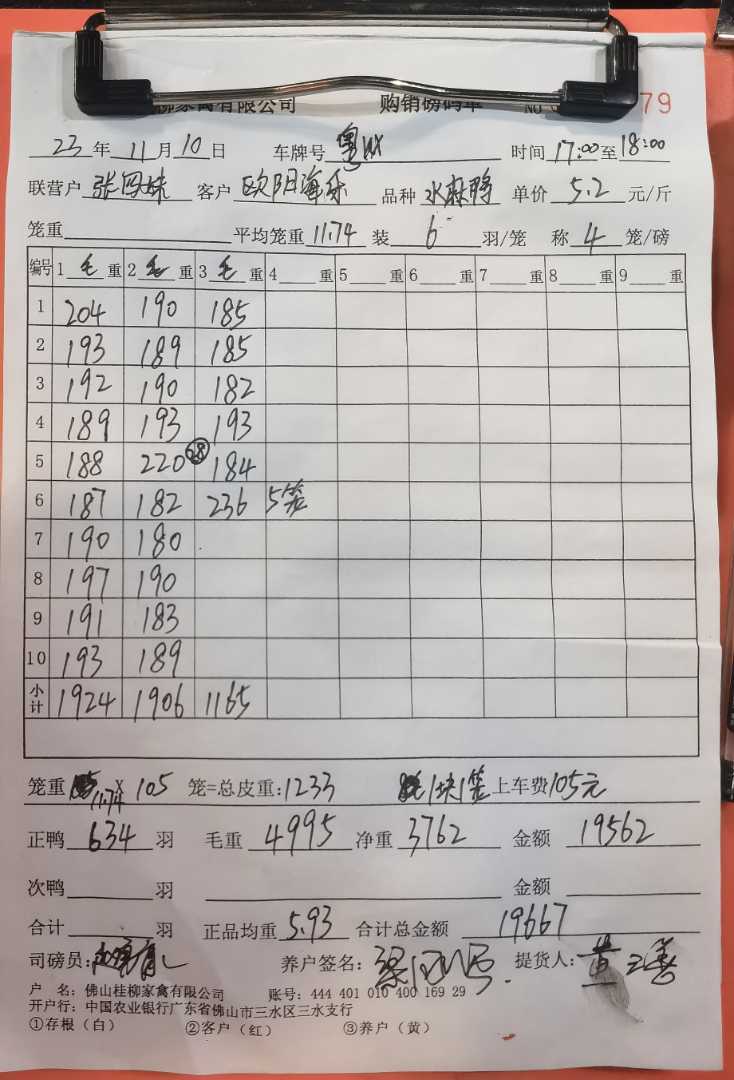 柳家禽有限公司 购销磅码单 NO 79
23年11月10日 车牌号 粤 时间17:00至18:00
联营户 张四妹 客户 欧阳海乐 品种 水麻鸭 单价 5.2 元/斤
笼重 平均笼重 11.74 装 6 羽/笼 称 4 笼/磅
编号 1 毛 重 2 毛 重 3 毛 重 4 重 5 重 6 重 7 重 8 重 9 重
1 204 190 185
2 193 189 185
3 192 190 182
4 189 193 193
5 188 220 68 184
6 187 182 236 5笼
7 190 180
8 197 190
9 191 183
10 193 189
小计 1924 1906 1165
笼重 11.74 × 105 笼=总皮重:1233 1块1笼上车费105元
正鸭 634 羽 毛重 4995 净重 3762 金额 19562
次鸭 羽 金额
合计 羽 正品均重 5.93 合计总金额 19667
司磅员: 养户签名: 提货人: 黄
户 名:佛山桂柳家禽有限公司 账号:444 401 010 400 169 29
开户行:中国农业银行广东省佛山市三水区三水支行
①存根(白) ②客户(红) ③养户(黄)